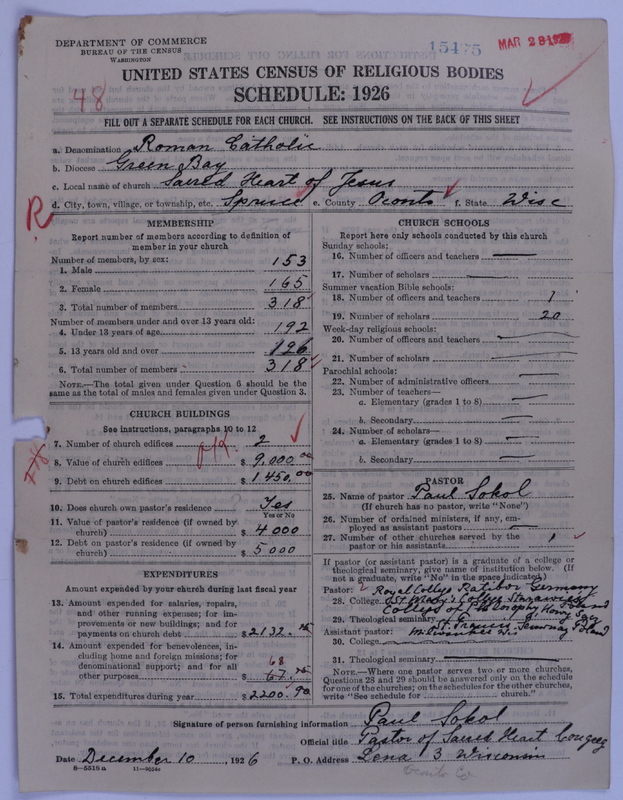 DEPARTMENT OF COMMERCE
BUREAU OF THE CENSUS
WASHINGTON
15475
MAR 28 192
48
UNITED STATES CENSUS OF RELIGIOUS BODIES
SCHEDULE: 1926
FILL OUT A SEPARATE SCHEDULE FOR EACH CHURCH. SEE INSTRUCTIONS ON THE BACK OF THIS SHEET
a. Denomination Roman Catholic
b. Diocese Green Bay
c. Local name of church Sacred Heart of Jesus
d. City, town, village, or township, etc. Spruce e. County Oconto f. State Wisc
R
MEMBERSHIP
Report number of members according to definition of
member in your church
Number of members, by sex:
1. Male 153
2. Female 165
3. Total number of members 318
Number of members under and over 13 years old:
4. Under 13 years of age 192
5. 13 years old and over 126
6. Total number of members 318
NOTE.—The total given under Question 6 should be the
same as the total of males and females given under Question 3.
CHURCH BUILDINGS
See instructions, paragraphs 10 to 12
7. Number of church edifices 2
8. Value of church edifices $ 9,000.00
9. Debt on church edifices $ 1450.00
10. Does church own pastor's residence Yes
Yes or No
11. Value of pastor's residence (if owned by
church) $ 4000
12. Debt on pastor's residence (if owned by
church) $ 5000
EXPENDITURES
Amount expended by your church during last fiscal year
13. Amount expended for salaries, repairs,
and other running expenses; for im-
provements or new buildings; and for
payments on church debt $ 2132.
14. Amount expended for benevolences, in-
cluding home and foreign missions; for
denominational support; and for all
other purposes $ 67.
68
15. Total expenditures during year $ 2200.90
CHURCH SCHOOLS
Report here only schools conducted by this church
Sunday schools:
16. Number of officers and teachers —
17. Number of scholars —
Summer vacation Bible schools:
18. Number of officers and teachers 1
19. Number of scholars 20
Week-day religious schools:
20. Number of officers and teachers —
21. Number of scholars —
Parochial schools:
22. Number of administrative officers —
23. Number of teachers—
a. Elementary (grades 1 to 8) —
b. Secondary —
24. Number of scholars—
a. Elementary (grades 1 to 8) —
b. Secondary —
PASTOR
25. Name of pastor Paul Sokol
(If church has no pastor, write "None")
26. Number of ordained ministers, if any, em-
ployed as assistant pastors —
27. Number of other churches served by the
pastor or his assistants 1
If pastor (or assistant pastor) is a graduate of a college or
theological seminary, give name of institution below. (If
not a graduate, write "No" in the space indicated.)
Pastor: Royal College Ratibor Germany
28. College St. Mary's College
29. Theological seminary
Assistant pastor: St. Francis Seminary
30. College Milwaukee Wis
31. Theological seminary
NOTE.—Where one pastor serves two or more churches,
Questions 28 and 29 should be answered only on the schedule
for one of the churches; on the schedules for the other churches,
write "See schedule for church."
Signature of person furnishing information Paul Sokol
Official title Pastor of Sacred Heart Congreg
Date December 10, 1926 P. O. Address Lena 3 Wisconsin
8—5518a 11—9664
Oconto Co